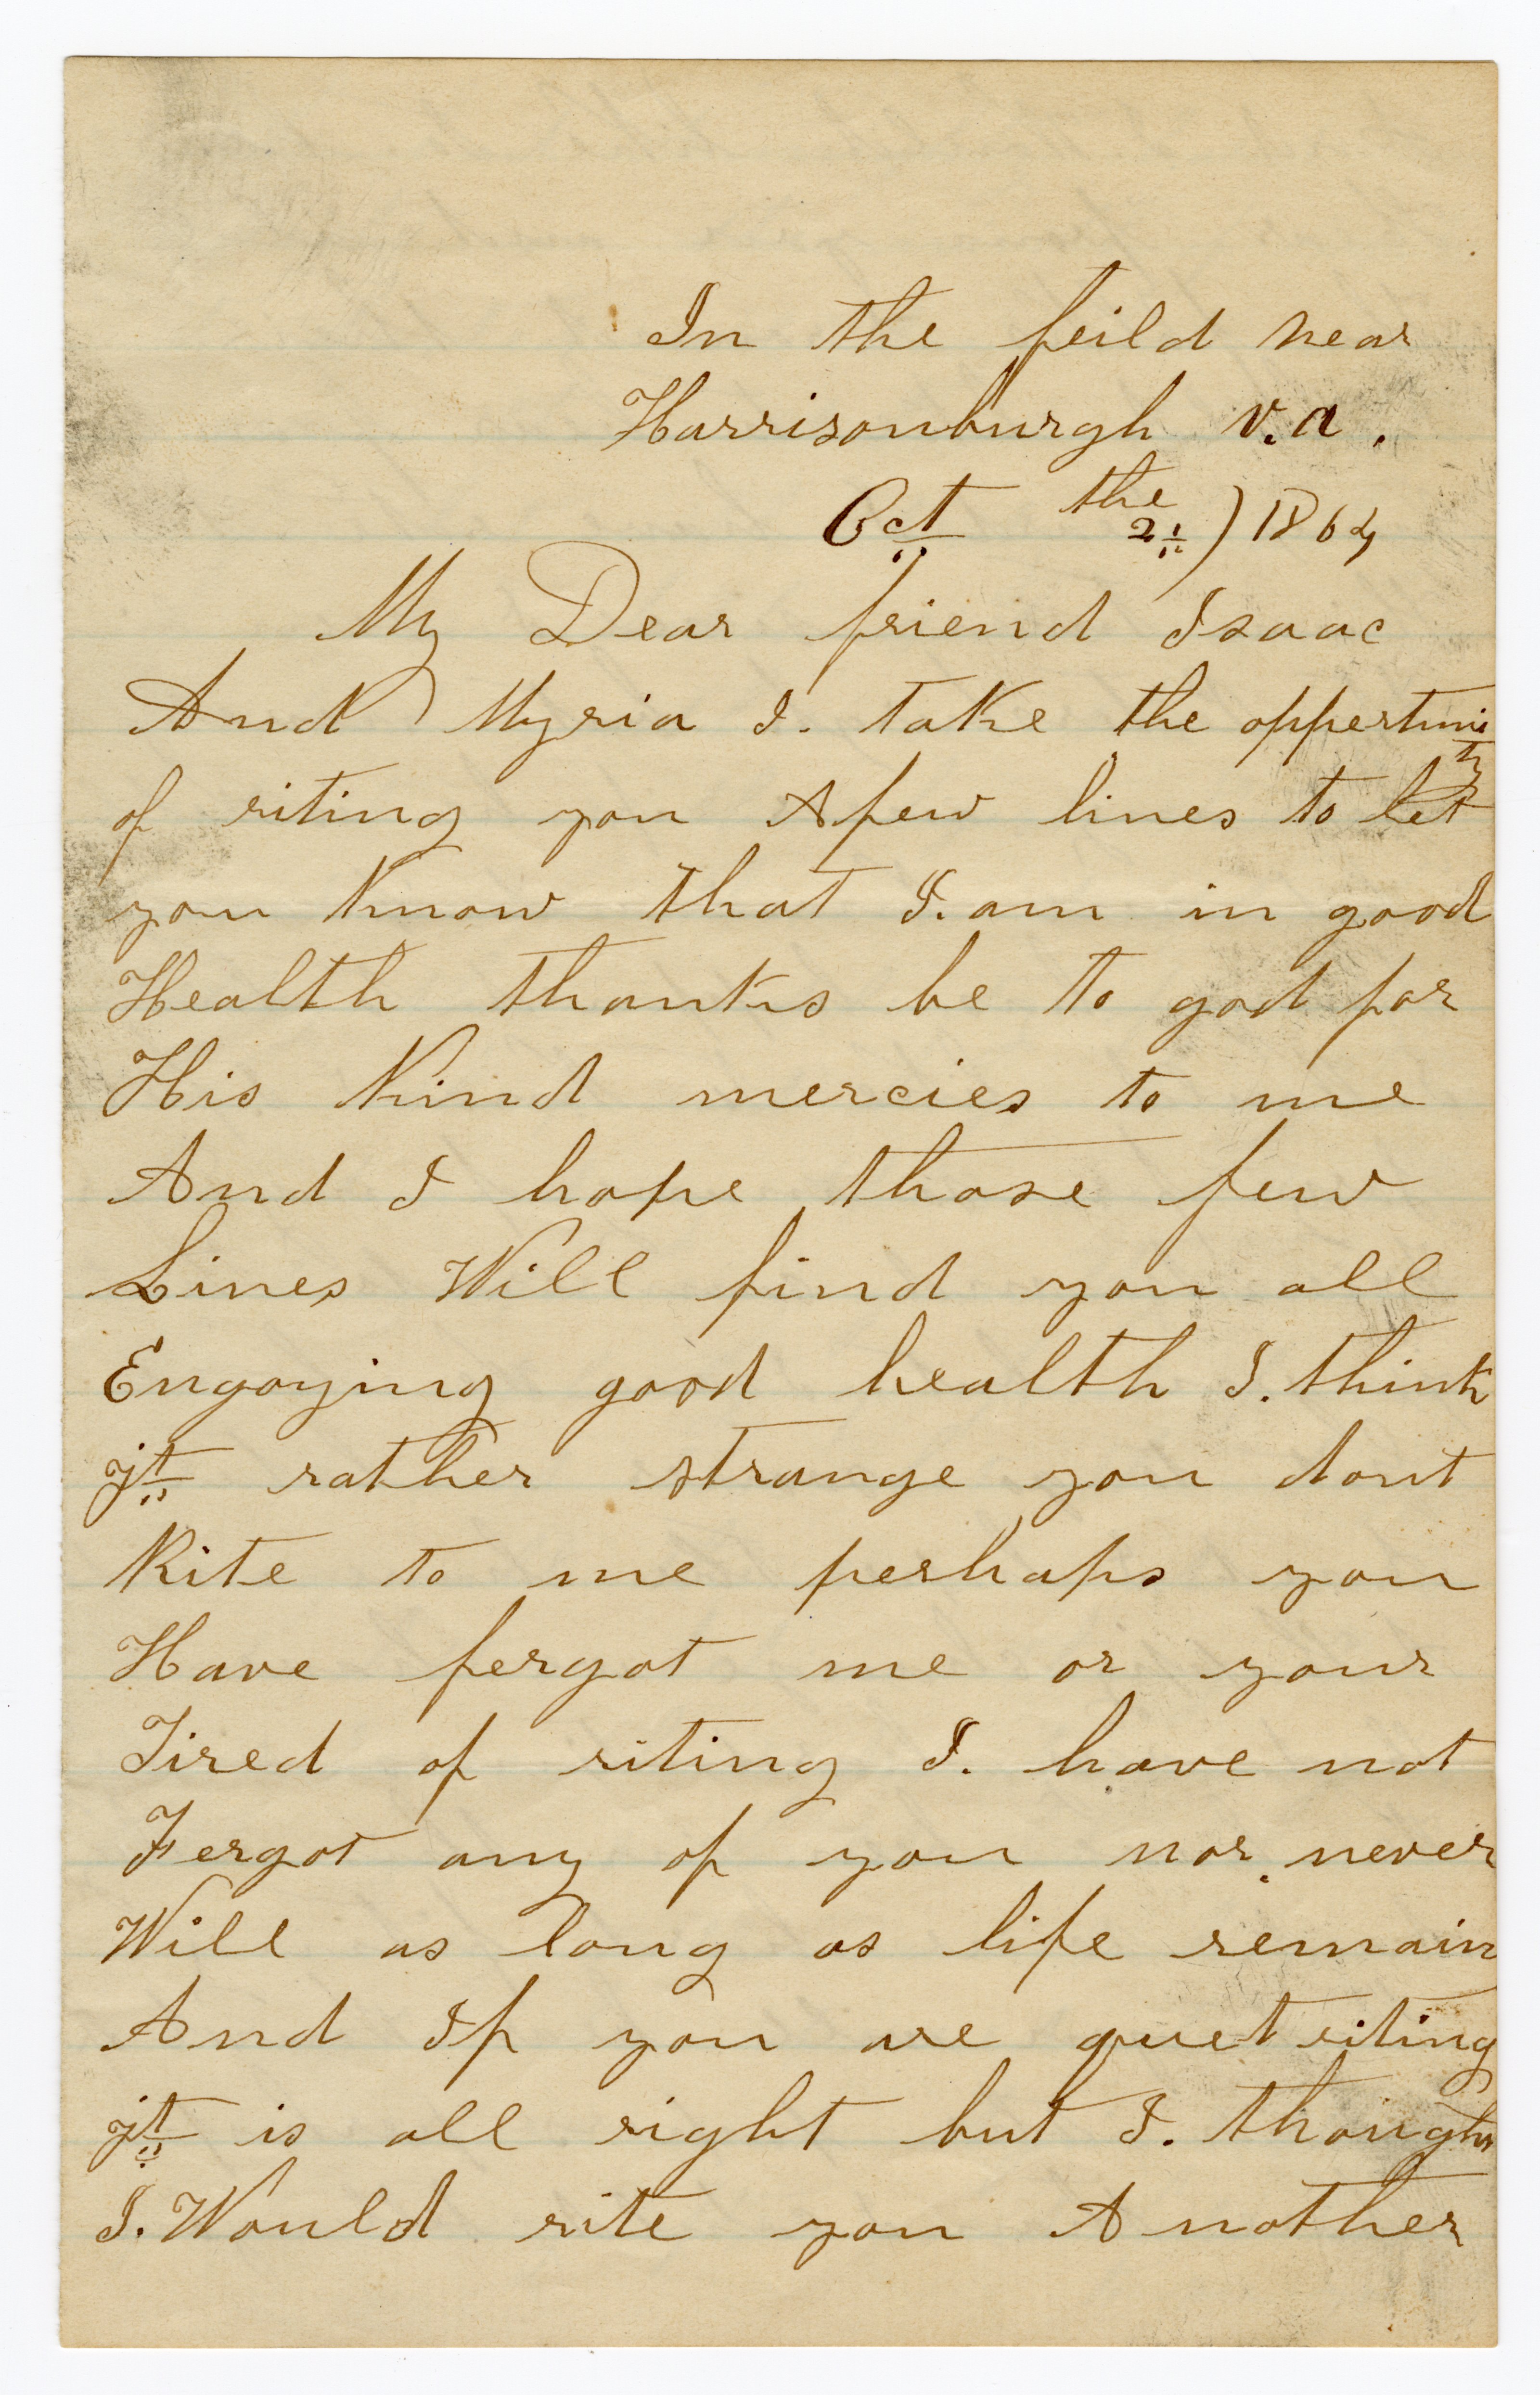 In the feild near
Harrisonburgh v.a.
Oct the 2i) 1864
My Dear friend Isaac
And Myria I. take the oppertunity
of riting you A few lines to let
you Know that I. am in good
Health thanks be to god for
His Kind mercies to me
And I hope those few
Lines Will find you all
Engoying good health I. think
it rather strange you dont
Rite to me perhaps you
Have fergot me or your
Tired of riting I. have not
Fergot any of you nor never
Will as long as life remain
And If you are quet riting
it is all right but I. though
I. Would rite you Another